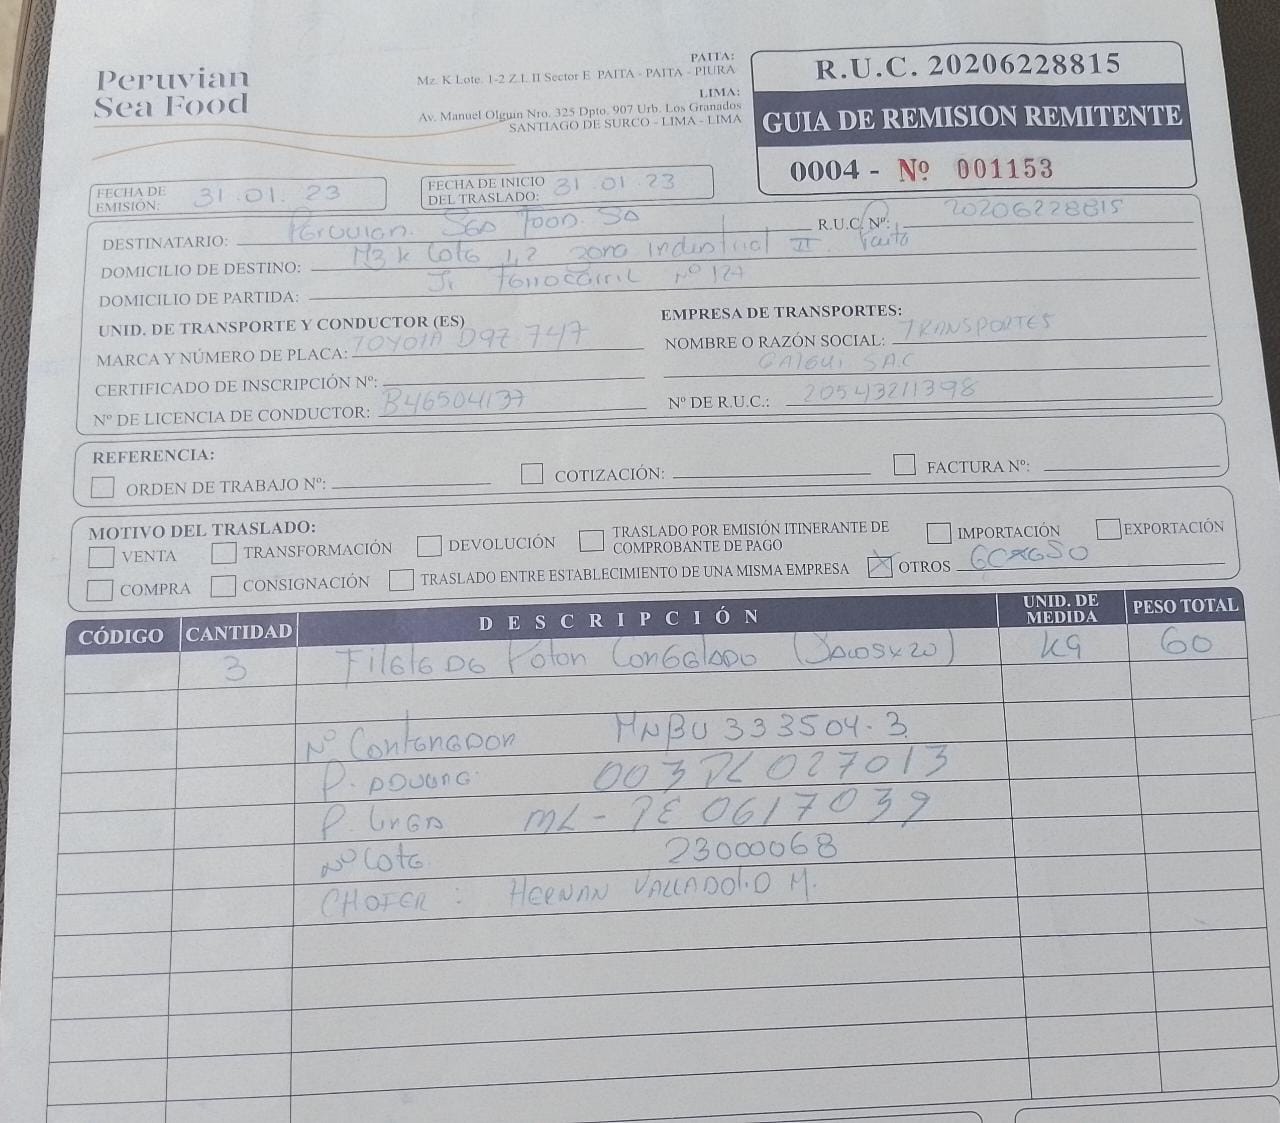 Peruvian
Sea Food
PAITA:
Mz. K Lote. 1-2 Z.I. II Sector E PAITA - PAITA - PIURA
LIMA:
Av. Manuel Olguin Nro. 325 Dpto. 907 Urb. Los Granados
SANTIAGO DE SURCO - LIMA - LIMA
R.U.C. 20206228815
GUIA DE REMISION REMITENTE
0004 - Nº 001153
FECHA DE EMISIÓN: 31.01.23
FECHA DE INICIO DEL TRASLADO: 31.01.23
DESTINATARIO: Peruvian Sea Food SA R.U.C. Nº: 20206228815
DOMICILIO DE DESTINO: Mz K Lote 1,2 zona Industrial II Paita
DOMICILIO DE PARTIDA: Jr Ferrocarril Nº 127
UNID. DE TRANSPORTE Y CONDUCTOR (ES)
MARCA Y NÚMERO DE PLACA: TOYOTA D9Z 747
CERTIFICADO DE INSCRIPCIÓN Nº:
Nº DE LICENCIA DE CONDUCTOR: B46504137
EMPRESA DE TRANSPORTES:
NOMBRE O RAZÓN SOCIAL: TRANSPORTES
SAC
Nº DE R.U.C.: 20543211398
REFERENCIA:
ORDEN DE TRABAJO Nº: COTIZACIÓN: FACTURA Nº:
MOTIVO DEL TRASLADO:
VENTA TRANSFORMACIÓN DEVOLUCIÓN TRASLADO POR EMISIÓN ITINERANTE DE COMPROBANTE DE PAGO IMPORTACIÓN EXPORTACIÓN
COMPRA CONSIGNACIÓN TRASLADO ENTRE ESTABLECIMIENTO DE UNA MISMA EMPRESA X OTROS
CÓDIGO CANTIDAD DESCRIPCIÓN UNID. DE MEDIDA PESO TOTAL
3 Filete De Poton Congelado (Sacosx20) kg 60
Nº Contenedor MNBU 333504-3
P. Aduana: 003PL027013
P. Linea ML-PE0617039
Nº Lote 23000068
CHOFER: HERNAN VALLADOLID M.